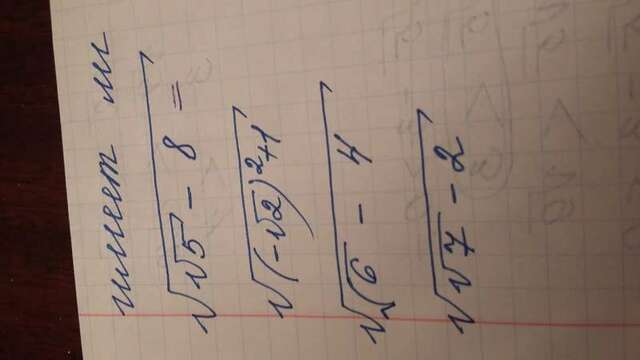 имеет ли
√(√5 - 8) =
√((-√2)²+1)
√(√6 - 4)
√(√7 - 2)